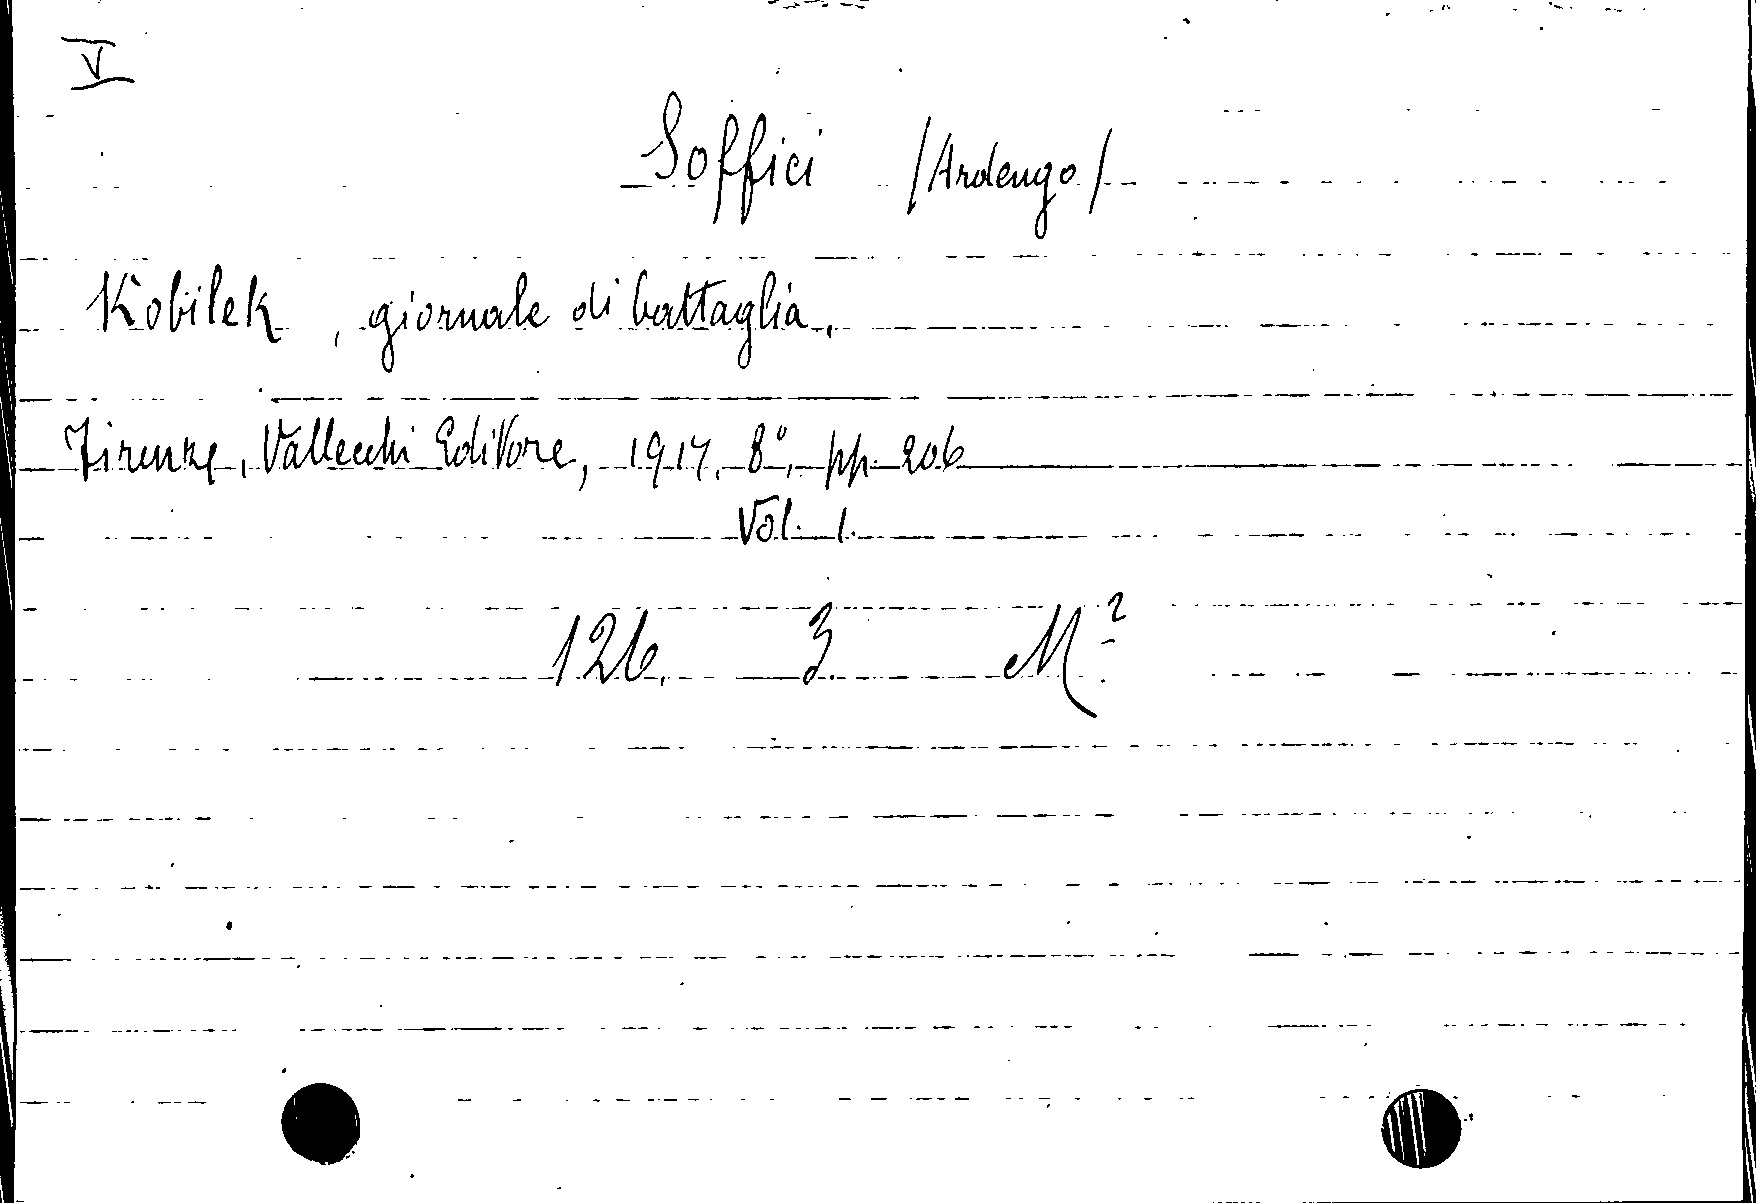 V
Soffici /Ardengo/
Kobilek, giornale di battaglia.
Firenze, Vallecchi Editore, 1917. 8º, pp. 206
Vol. 1.
126. 3. M²